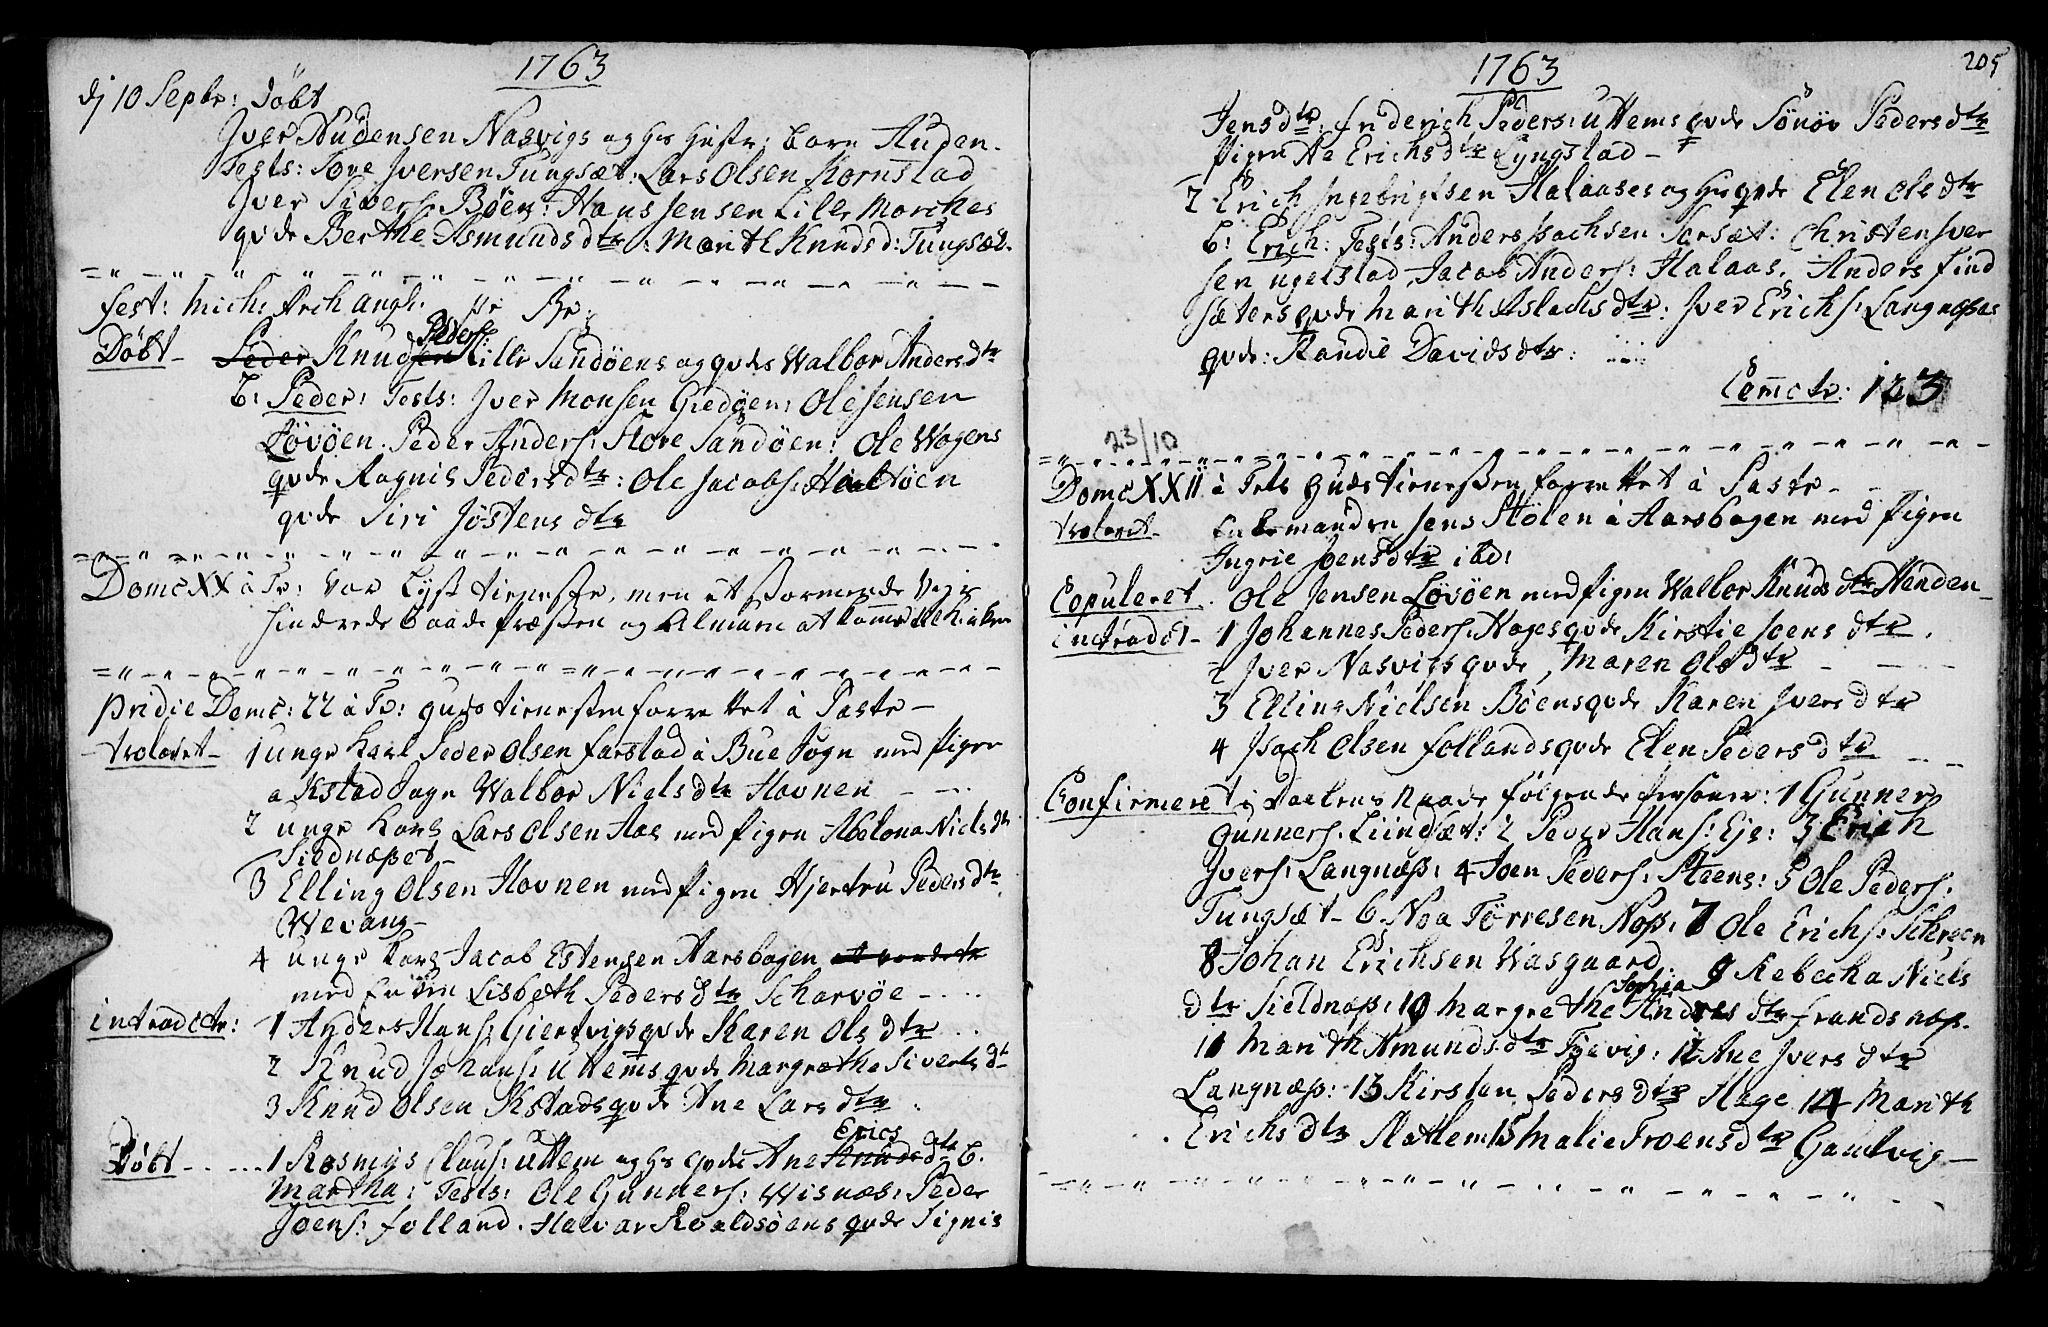 1763
dj 10 Sepbr: Døbt
Jver Audensen Nasvigs og hs hustr: barn Auden.
Tests: Tore Jversen Tungsæt: Lars Olsen Kornstad
Jver Sivers: Bøen: Hans Jensen Lille Morches
qvde Berthe Asmundsdtr: Marith Knudsd: Tungsæt.
fest: Mich: Arch angl:
Døbt - Peder Knudsen Peders: Lille Sandøens og qvdes Walbor Andersdtr
b: Peder: Tests: Jver Monsen Giedøen: Ole Jensen
Løvøen. Peder Anders: Store Sandøen: Ole Wogens
qvde Ragnil Pedersdtr: Ole Jacobs: Henøen
qvde Siri Jøstensdtr
Domc XX à Tr: var lyst tieneste, men et stormende vejr
hindrede baade præsten og Almuen at komme til Kirken
pridie Domc: 22 à Tr: guds tienesten forrettet à Raste -
trolovet - 1 unge karl Peder Olsen farstad à Bue Sogn med pigen
a Kstad Sogn Walbor Nielsdtr Hovnen
2 unge karl Lars Olsen Aas med pigen Abelona Nielsdtr
Sieldnæsset -
3 Elling Olsen Hovnen med pigen Hjertru Pedersdtr
Wevang -
4 unge karl Jacob Estensen Aarsbogen
med Enken Lisbeth Pedersdtr Scharvøe
introdctr: 1 Anders Hans: Giertvigs qvde Karen Olsdtr
2 Knud Johans: uttems qvde Margrethe Sivertsdtr
3 Knud Olsen Kstads qvde Ane Larsdtr
Erics
Døbt 1 Rasmus Clous: uttem og hs qvde Ane Knudsdtr b.
Martha: Tests: Ole Gunners: Wisnæs: Peder
Joens: folland. Halvar Roaldsøens qvde Signis
1763
205
Jensdtr: friderich Peders: uttems qvde Sönöv Pedersdtr
pigen Ae Erichsdtr Lyngstad -
2 Erich Jngebrigtsen Halaases og hs qvde Elen Olsdtr
b: Erich: Tests: Anders Jsachsen Torsæt: Christen Jver
sen ugelstad, Jacob Anders: Halaas. Anders find
sæters qvde Marith Aslachsdtr: Jver Erichs: Langnæsses
qvde: Randie Davidsdtr:
Comctr: 123
23/10
Domc XXII à Trts guds tienesten forrettet à Raste -
trolovet - Enkemanden Jens Stolen à Aarsbogen med pigen
Ingrie Joensdtr ibd:
Copuleret. Ole Jensen Løvøen med pigen Walbor Knudsdtr Henden -
introdct - 1 Johannes Peders: Hoges qvde Kirstie Joensdtr.
2 Jver Nasvigs qvde, Maren Olsdtr
3 Elling Nielsen Bøens qvde Karen Jversdtr
4 Jsach Olsen follands qvde Elen Pedersdtr
Confirmeret i Daabens Naade følgende personer: 1 Gunner
Gunners. Lundsæt: 2 Peder Hans: Eje: 3 Erich
Jvers: Langnæss: 4 Joen Peders: Steens: 5 Ole Peders:
Tungsæt - 6 Noa Tørresen Noss: 7 Ole Erichs: Schreen
8 Johan Erichsen Wasgaard. 9 Rebecha Niels
dtr Sieldnæss: 10 Margrethe Sophia Andersdtr frandsnæs.
11 Marith Amundsdtr Tøevig: 12 Ane Jversdtr
Langnæss: 13 Kirsten Pedersdtr Hage 14 Marith
Erichsdtr Nottem 15 Malie Troensdtr Gaultvig -